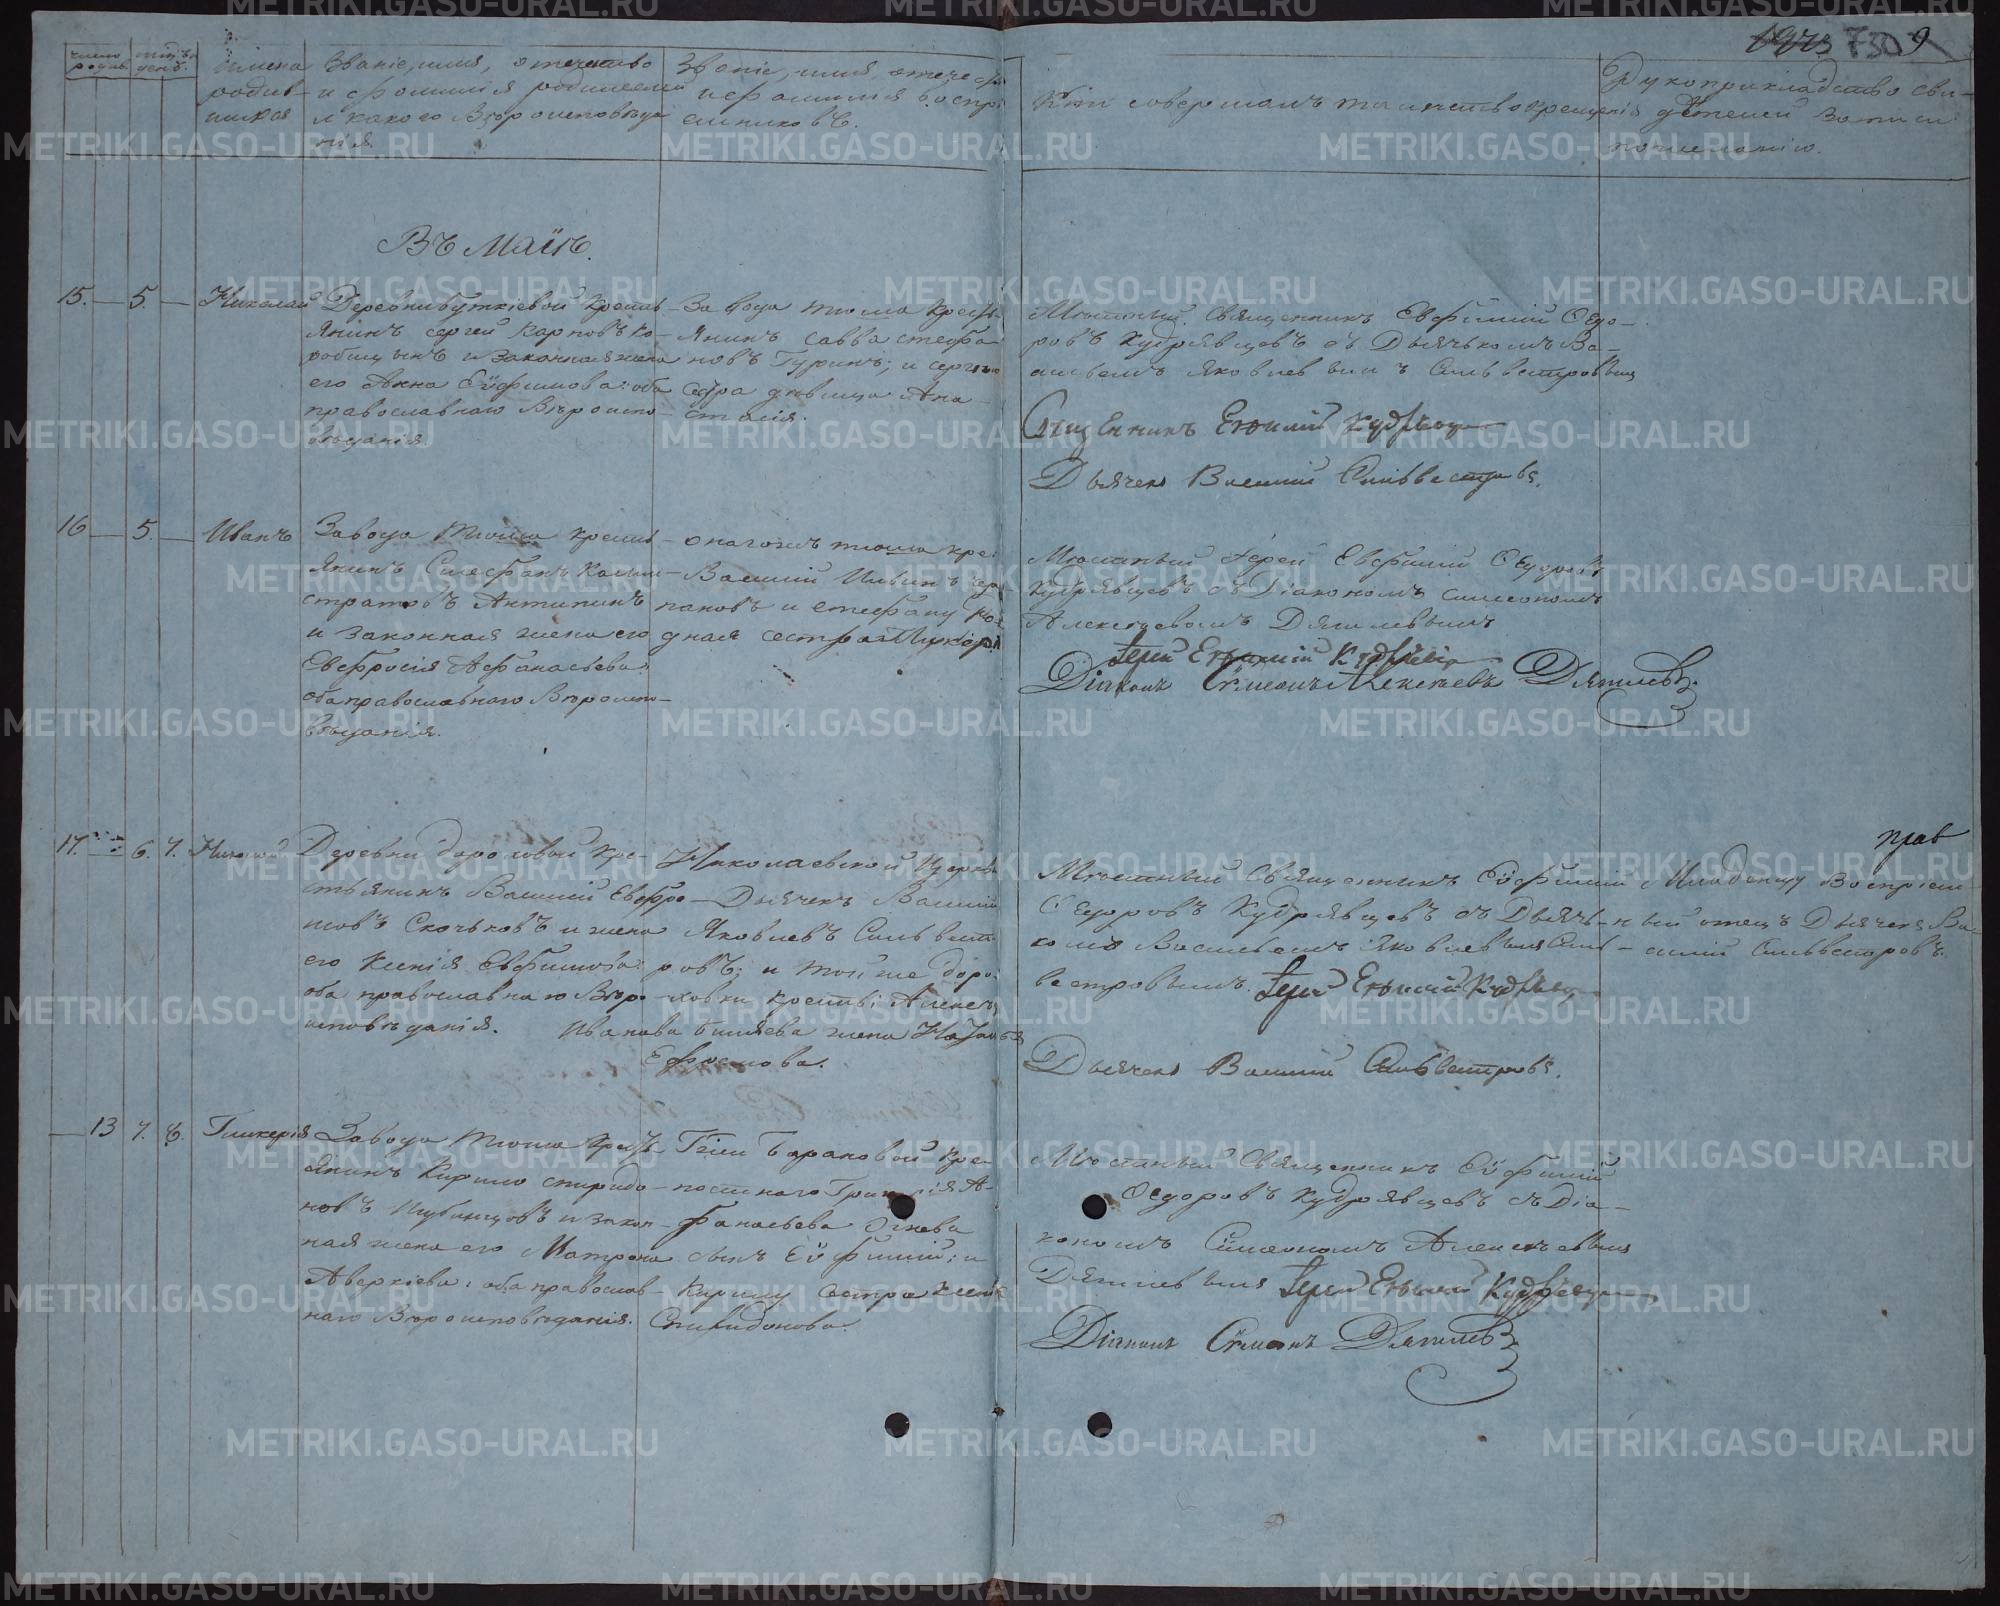 число родив.
мѣсяцъ день.
имена родив-шихся
Званіе, имя, отечество
и фамилія родителей
и какого Вѣроисповѣда
нія
Званіе, имя, отечест
и фамилія воспрі
емниковъ.
Кто совершалъ таинство крещенія
Рукоприкладство сви-
дѣтелей записи
по желанію.
730
9
Въ Маіѣ.
15. — 5. — Николай
Деревни Буткіевой Кресть
янинъ Сергей Карповъ Ко-
робицынъ и законная жена
его Анна Еѵфимова: оба
православнаго Вѣроиспо-
вѣданія
Завода тиома Кресть
янинъ Савва Стефа
новъ Гуринъ; и Сергею
сестра дѣвица Ана-
стасія.
Мѣстный Священникъ Евфимій Ѳедо-
ровъ Кудрявцевъ съ Дьячькомъ Ва-
сильемъ Яковлевымъ Сильвестровым
Священникъ Евфимій Кудрявцевъ
Дьячекъ Василій Сильвестровъ.
16 — 5. — Иванъ
Завода кресть-
янинъ Стефанъ Калли-
стратовъ Антипинъ
и законная жена его
Евфросія Афанасьева
оба православнаго Вѣроиспо-
вѣданія.
Василій Ильинъ
пановъ и Стефану
дная сестра
Мѣстный Іерей Евфимій Ѳедоровъ
Кудрявцевъ съ Діакономъ Симеономъ
Алексѣевымъ Дягилевымъ
Іерей Евфимій Кудрявцевъ
Діаконъ Сѵмеонъ Алексѣевъ Дягилевъ.
17. — 6. 7. Николай
Деревни Дороховой Кре-
стьянинъ Василій Евфро-
новъ Скочьковъ и жена
его Ксенія Евфимова:
оба православнаго Вѣро-
исповѣданія.
Николаевской Церкви
Дьячекъ Василій
Яковлевъ Сильвест
ровъ; и той же Доро-
ховки Крестьі: Алексѣя
Иванова Биляева жена Наталья
Ефремова.
Мѣстный Священникъ Еѵфимій
Ѳедоровъ Кудрявцевъ съ Дьячь-
комъ Васильемъ Яковлевымъ Силь-
вестровымъ. Іерей Евфимій Кудрявцевъ
Дьячекъ Василій Сильвестровъ.
прав
Младенцу Воспріем-
ный отецъ Дьячекъ Ва-
силій Сильвестровъ.
— 13 7. 8. Гликерія
Завода Кресть-
янинъ Кирило Спиридо-
новъ Шубинцовъ и закон-
ная жена его Матрона
Аверкіева: оба православ-
наго Вѣроисповѣданія.
Барановой Кре-
постнаго Григорія А-
фанасьева Огнева
сынъ Еѵфимій; и
Кирилу сестра Ксенія
Спиридонова.
Мѣстный Священникъ Еѵфимій
Ѳедоровъ Кудрявцевъ съ Діа-
кономъ Сімеономъ Алексѣевым
Дягилевымъ Іерей Евфимій Кудрявцевъ
Діаконъ Сѵмеонъ Дягилевъ
METRIKI.GASO-URAL.RU